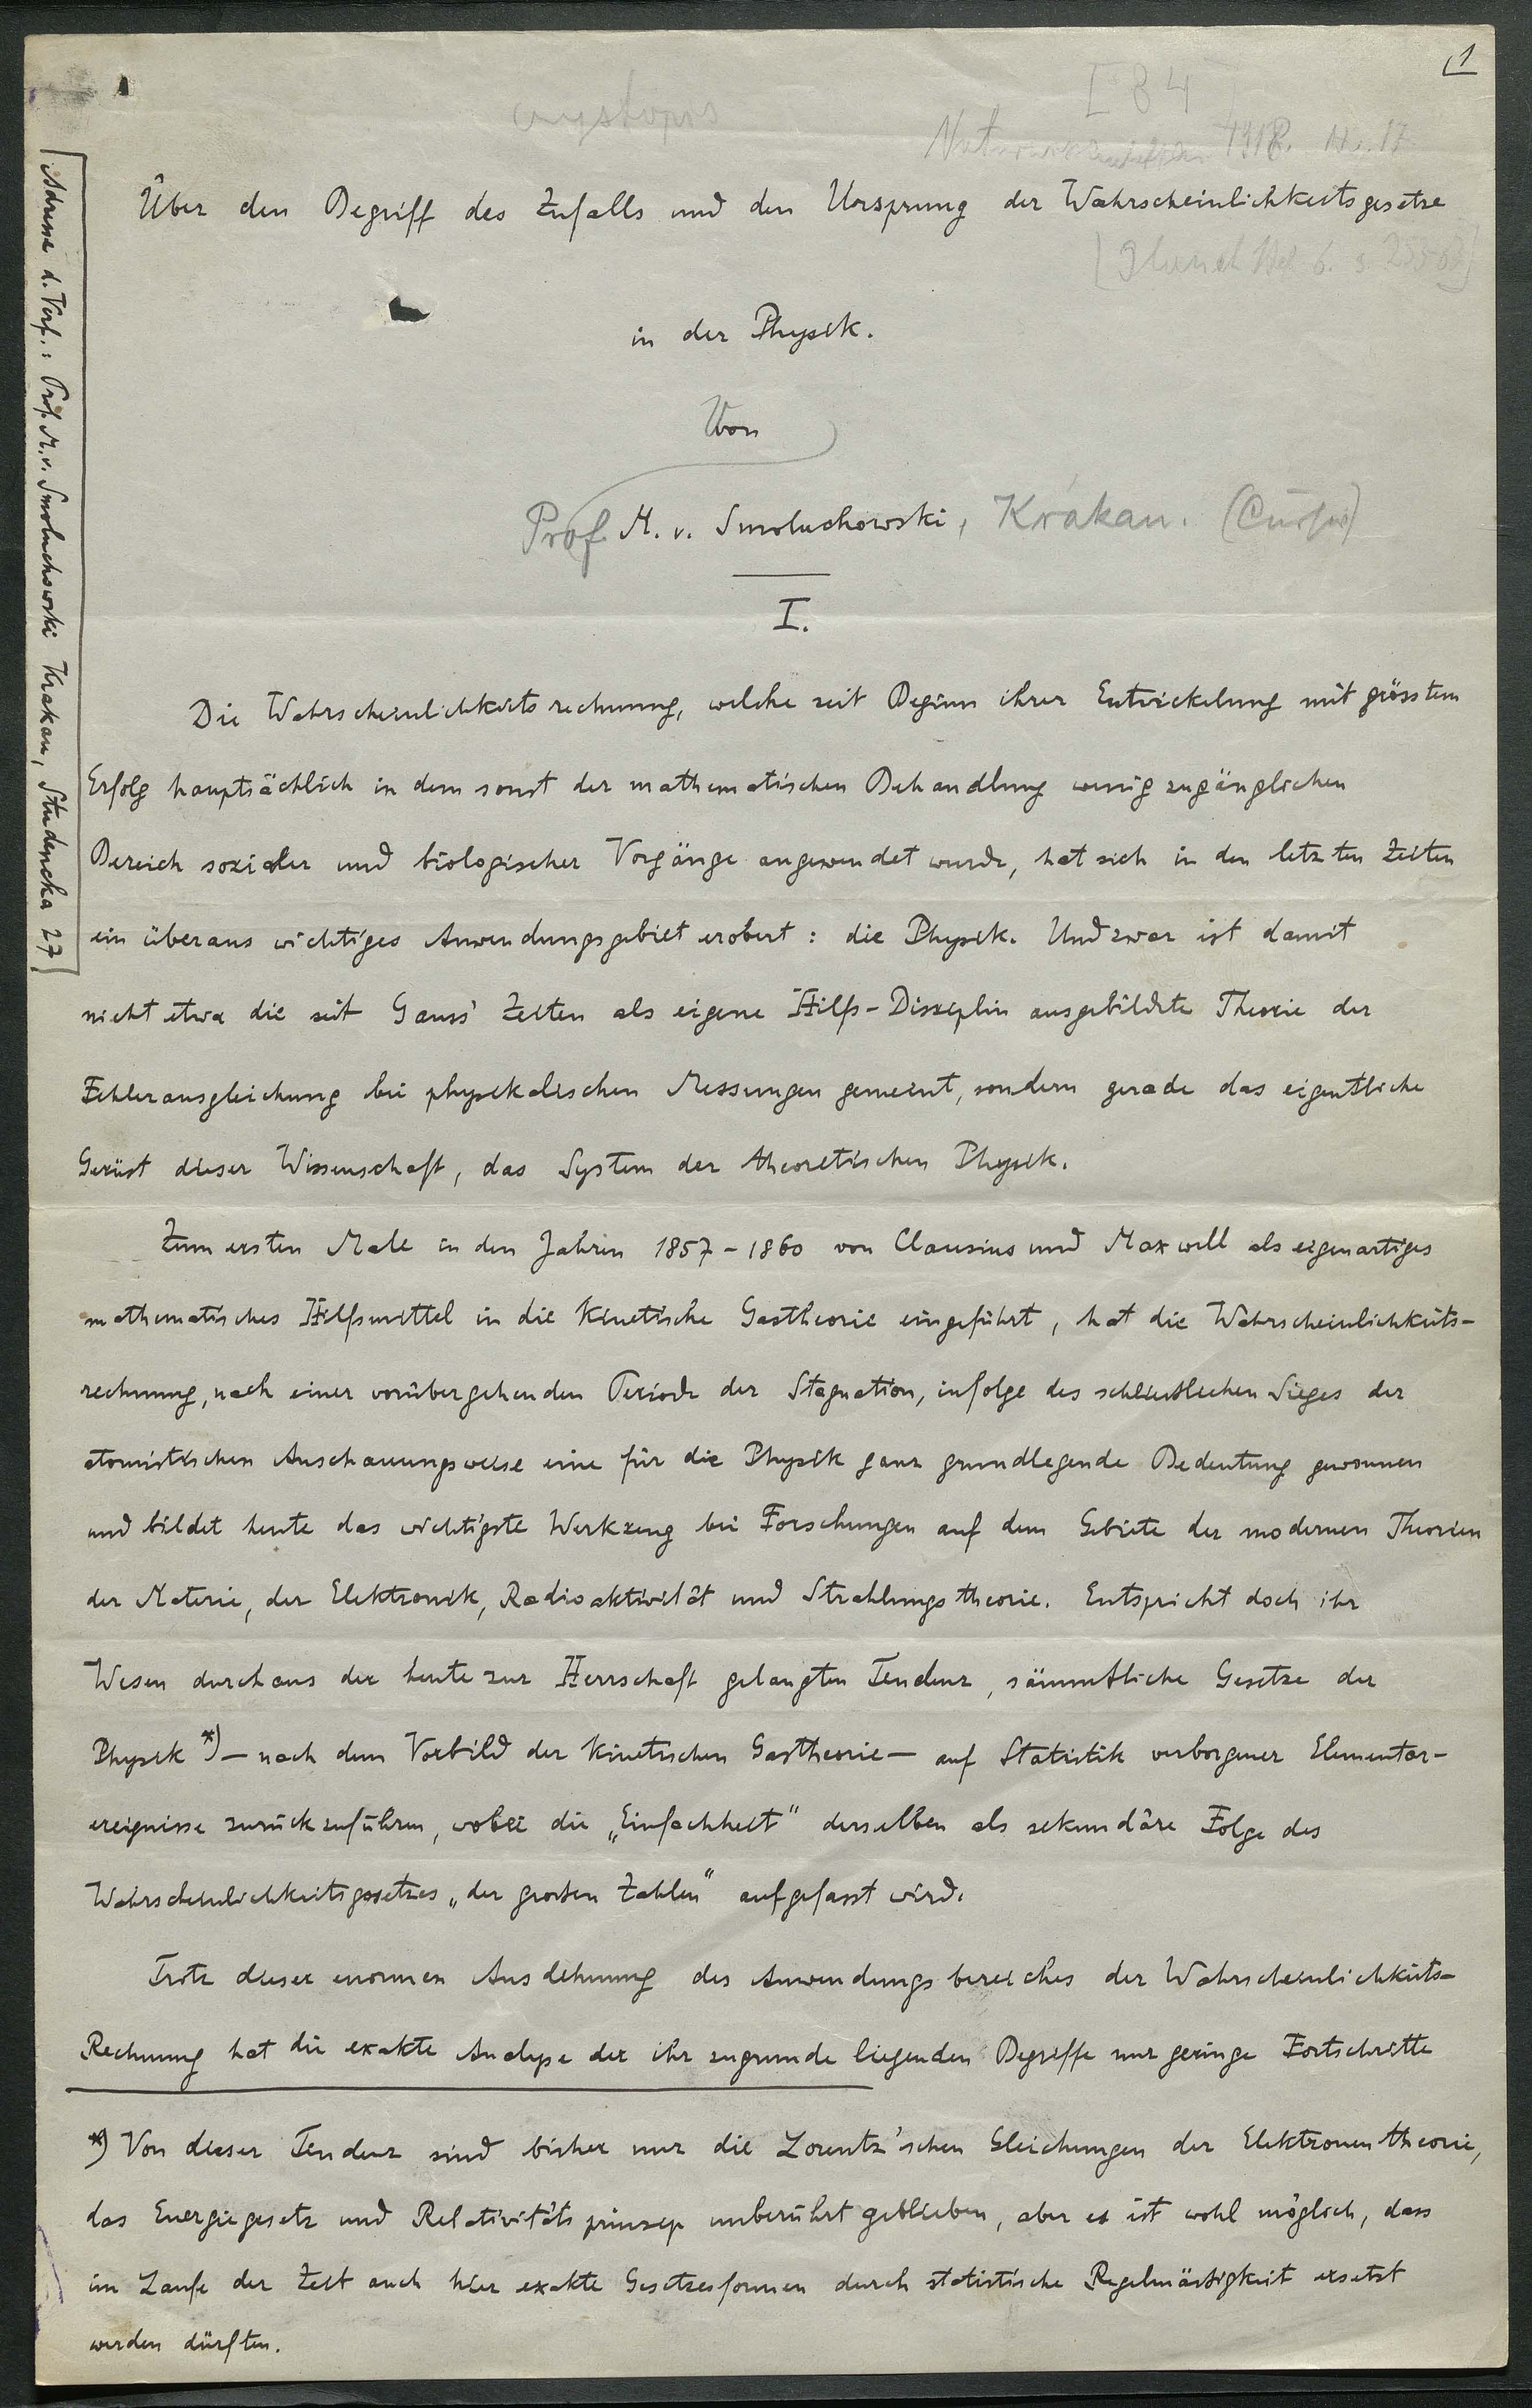 1
czystopis
I 84
Naturwissenschaften 1918. H. 17
Über den Begriff des Zufalls und den Ursprung der Wahrscheinlichkeitsgesetze
in der Physik.
Von
Prof. M. v. Smoluchowski, Krakau.
I.
Adresse d. Verf.: Prof. M. v. Smoluchowski Krakau, Studencka 27
Die Wahrscheinlichkeitsrechnung, welche seit Beginn ihrer Entwickelung mit grösstem
Erfolg hauptsächlich in dem sonst der mathematischen Behandlung wenig zugänglichen
Bereich sozialer und biologischer Vorgänge angewendet wurde, hat sich in den letzten Zeiten
ein überaus wichtiges Anwendungsgebiet erobert: die Physik. Und zwar ist damit
nicht etwa die seit Gauss' Zeiten als eigene Hilfs-Disziplin ausgebildete Theorie der
Fehlerausgleichung bei physikalischen Messungen gemeint, sondern gerade das eigentliche
Gerüst dieser Wissenschaft, das System der theoretischen Physik.
Zum ersten Male in den Jahren 1857-1860 von Clausius und Maxwell als eigenartiges
mathematisches Hilfsmittel in die kinetische Gastheorie eingeführt, hat die Wahrscheinlichkeits-
rechnung, nach einer vorübergehenden Periode der Stagnation, infolge des schliesslichen Sieges der
atomistischen Anschauungsweise eine für die Physik ganz grundlegende Bedeutung gewonnen
und bildet heute das wichtigste Werkzeug bei Forschungen auf dem Gebiete der modernen Theorien
der Materie, der Elektronik, Radioaktivität und Strahlungstheorie. Entspricht doch ihr
Wesen durchaus der heute zur Herrschaft gelangten Tendenz, sämmtliche Gesetze der
Physik *) — nach dem Vorbild der kinetischen Gastheorie — auf Statistik verborgener Elementar-
ereignisse zurückzuführen, wobei die „Einfachheit" derselben als sekundäre Folge des
Wahrscheinlichkeitsgesetzes „der grossen Zahlen" aufgefasst wird.
Trotz dieser enormen Ausdehnung des Anwendungsbereiches der Wahrscheinlichkeits-
Rechnung hat die exakte Analyse der ihr zugrunde liegenden Begriffe nur geringe Fortschritte
*) Von dieser Tendenz sind bisher nur die Lorentz'schen Gleichungen der Elektronentheorie,
das Energiegesetz und Relativitätsprinzip unberührt geblieben, aber es ist wohl möglich, dass
im Laufe der Zeit auch hier exakte Gesetzesformen durch statistische Regelmässigkeit ersetzt
werden dürften.